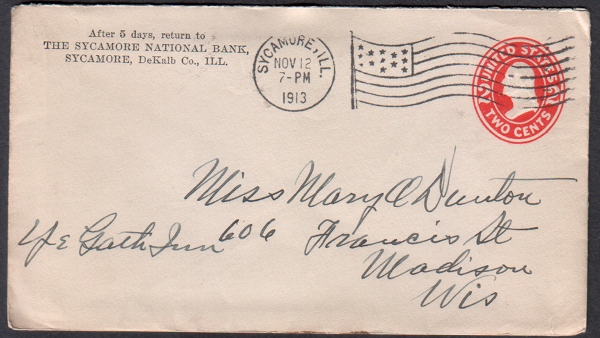 After 5 days, return to
THE SYCAMORE NATIONAL BANK,
SYCAMORE, DeKalb Co., ILL.
SYCAMORE, ILL.
NOV 12
7-PM
1913
UNITED STATES
TWO CENTS
Miss Mary C Dunton
Ye Gath Inn 606 Francis St
Madison
Wis